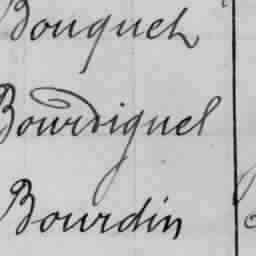 Bouquet
Bourdiguel
Bourdin